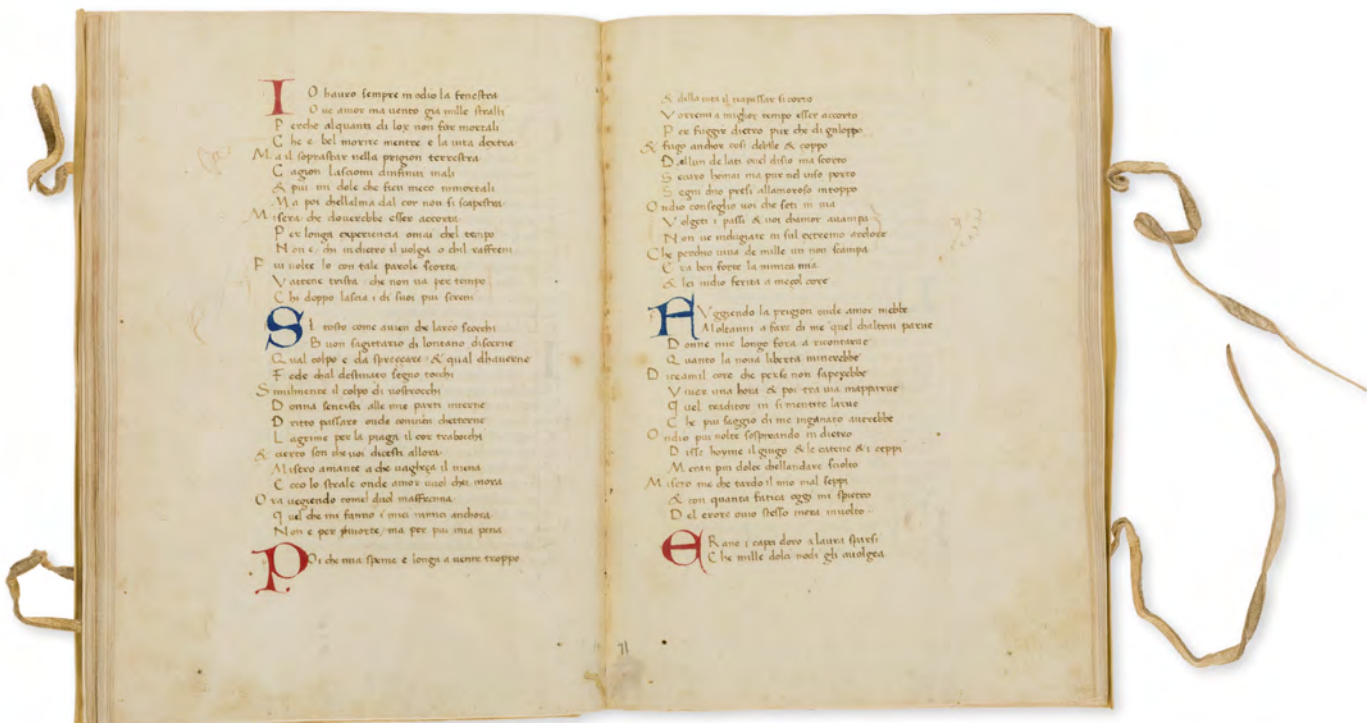 IO hauro sempre in odio la fenestra
Oue amor ma uento gia mille strali
Perche alquanti di lor non for mortali
Che e bel morire mentre e la uita dextra
Ma il soprastar nella prigion terrestra
Cagion lasciomi dinfiniti mali
& piu mi dole che fien meco immortali
Ma poi chellalma dal cor non si scapestra
Misera che douerebbe esser accorta
Per longa experiencia omai chel tempo
Non e chi indietro il uolga o chil raffreni
Piu uolte lo con tale parole scorta
Vattene trista che non ua per tempo
Chi doppo lascia i di suoi piu sereni
SI tosto come auien che larco scocchi
Buon sagittario di lontano discerne
Qual colpo e da sprezzare & qual dhauerne
Fede chal destinato segno tocchi
Similmente il colpo di uostrocchi
Donna sentisti alle mie parti interne
Dritto passare onde conuien chetterne
Lagrime per la piaga il cor trabocchi
& certo son che uoi dicesti allora
Misero amante a che uagheza il mena
Ecco lo strale onde amor uuol chei mora
Ora uegiendo comel duol maffrenna
Quel che mi fanno i miei nimici anchora
Non e per morte ma per piu mia pena
POi che mia speme e longa a uenire troppo
& della uita il trapassar si corto
Vorremi a miglior tempo esser accorto
Per fuggir dietro piu che di galoppo
& fugo anchor cosi debile & zoppo
Dallun de lati ouel disio ma scorto
Securo homai ma pur nel uiso porto
Segni chio presi allamoroso intoppo
Ondio conseglio uoi che seti in uia
Volgeti i passi & uoi chamor auampa
Non ue indugiate in sul extremo ardore
Che perchio uiua de mille un non scampa
Era ben forte la nimica mia
& lei uidio ferita a mezol core
FVggiendo la prigion onde amor mebbe
Moltanni a fare di me quel chaltrui parue
Donne mie longo fora a ricontarue
Quanto la noua liberta mincrebbe
Diceamil core che perse non saperebbe
Viuer una hora & poi tra uia mapparue
Quel traditor in si mentite larue
Che piu saggio di me inganato aurebbe
Ondio piu uolte sospirando in dietro
Disse hoyme il giugo & le catene & i ceppi
Meran piu dolce chellandare sciolto
Misero me che tardo il mio mal seppi
& con quanta fatica oggi mi spietro
Del erore ouio stesso mera inuolto
ERano i capei doro a laura sparsi
Che mille dolci nodi gli auolgea
71